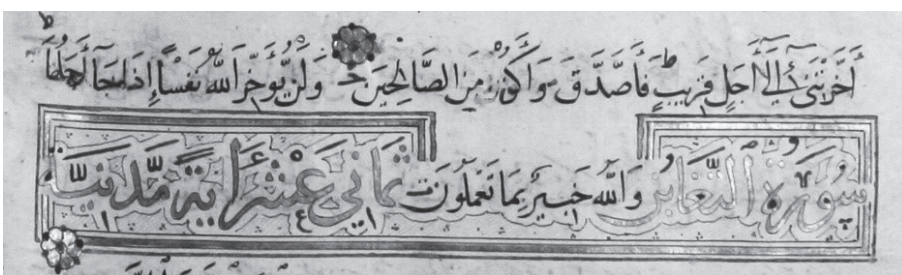 أَخَّرْتَنِي إِلَى أَجَلٍ قَرِيبٍ فَأَصَّدَّقَ وَأَكُونَ مِنَ الصَّالِحِينَ وَلَنْ يُؤَخِّرَ اللَّهُ نَفْسًا إِذَا جَا أَجَلُهَا
سُورَةُ التَّغَابُنِ وَاللَّهُ خَبِيرٌ بِمَا تَعْمَلُونَ ثَمَانِي عَشْرَ اٰيَةً مَدَنِيَّة